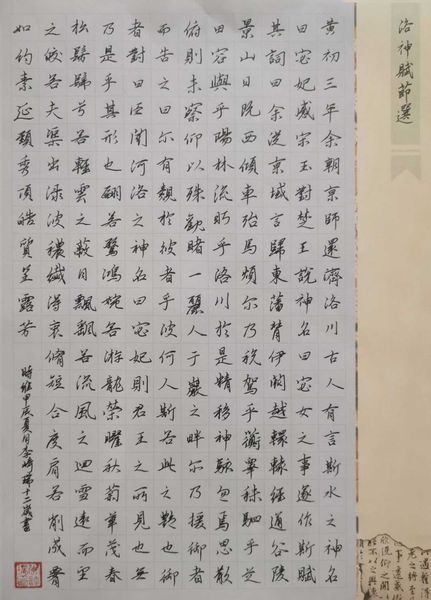 洛神賦節選
黃初三年余朝京師還濟洛川古人有言斯水之神名
曰宓妃感宋玉對楚王說神名曰宓女之事遂作斯賦
其詞曰余從京城言歸東藩背伊闕越轘轅經通谷陵
景山日既西傾車殆馬煩尔乃稅駕乎蘅皋秣駟乎芝
田容與乎陽林流眄乎洛川於是精移神駭忽焉思散
俯則未察仰以殊觀睹一麗人于巖之畔尔乃援御者
而告之曰尔有覿於彼者乎彼何人斯若此之艷也御
者對曰臣聞河洛之神名曰宓妃則君王之所見也無
乃是乎其形也翩若驚鴻婉若游龍榮曜秋菊華茂春
松髣髴兮若輕雲之蔽月飄飄若流風之迴雪遠而望
之皎若夫渠出淥波穠纖得衷脩短合度肩若削成腰
如約素延頸秀項皓質呈露芳
時維甲辰夏月李崎瑞十二歲書